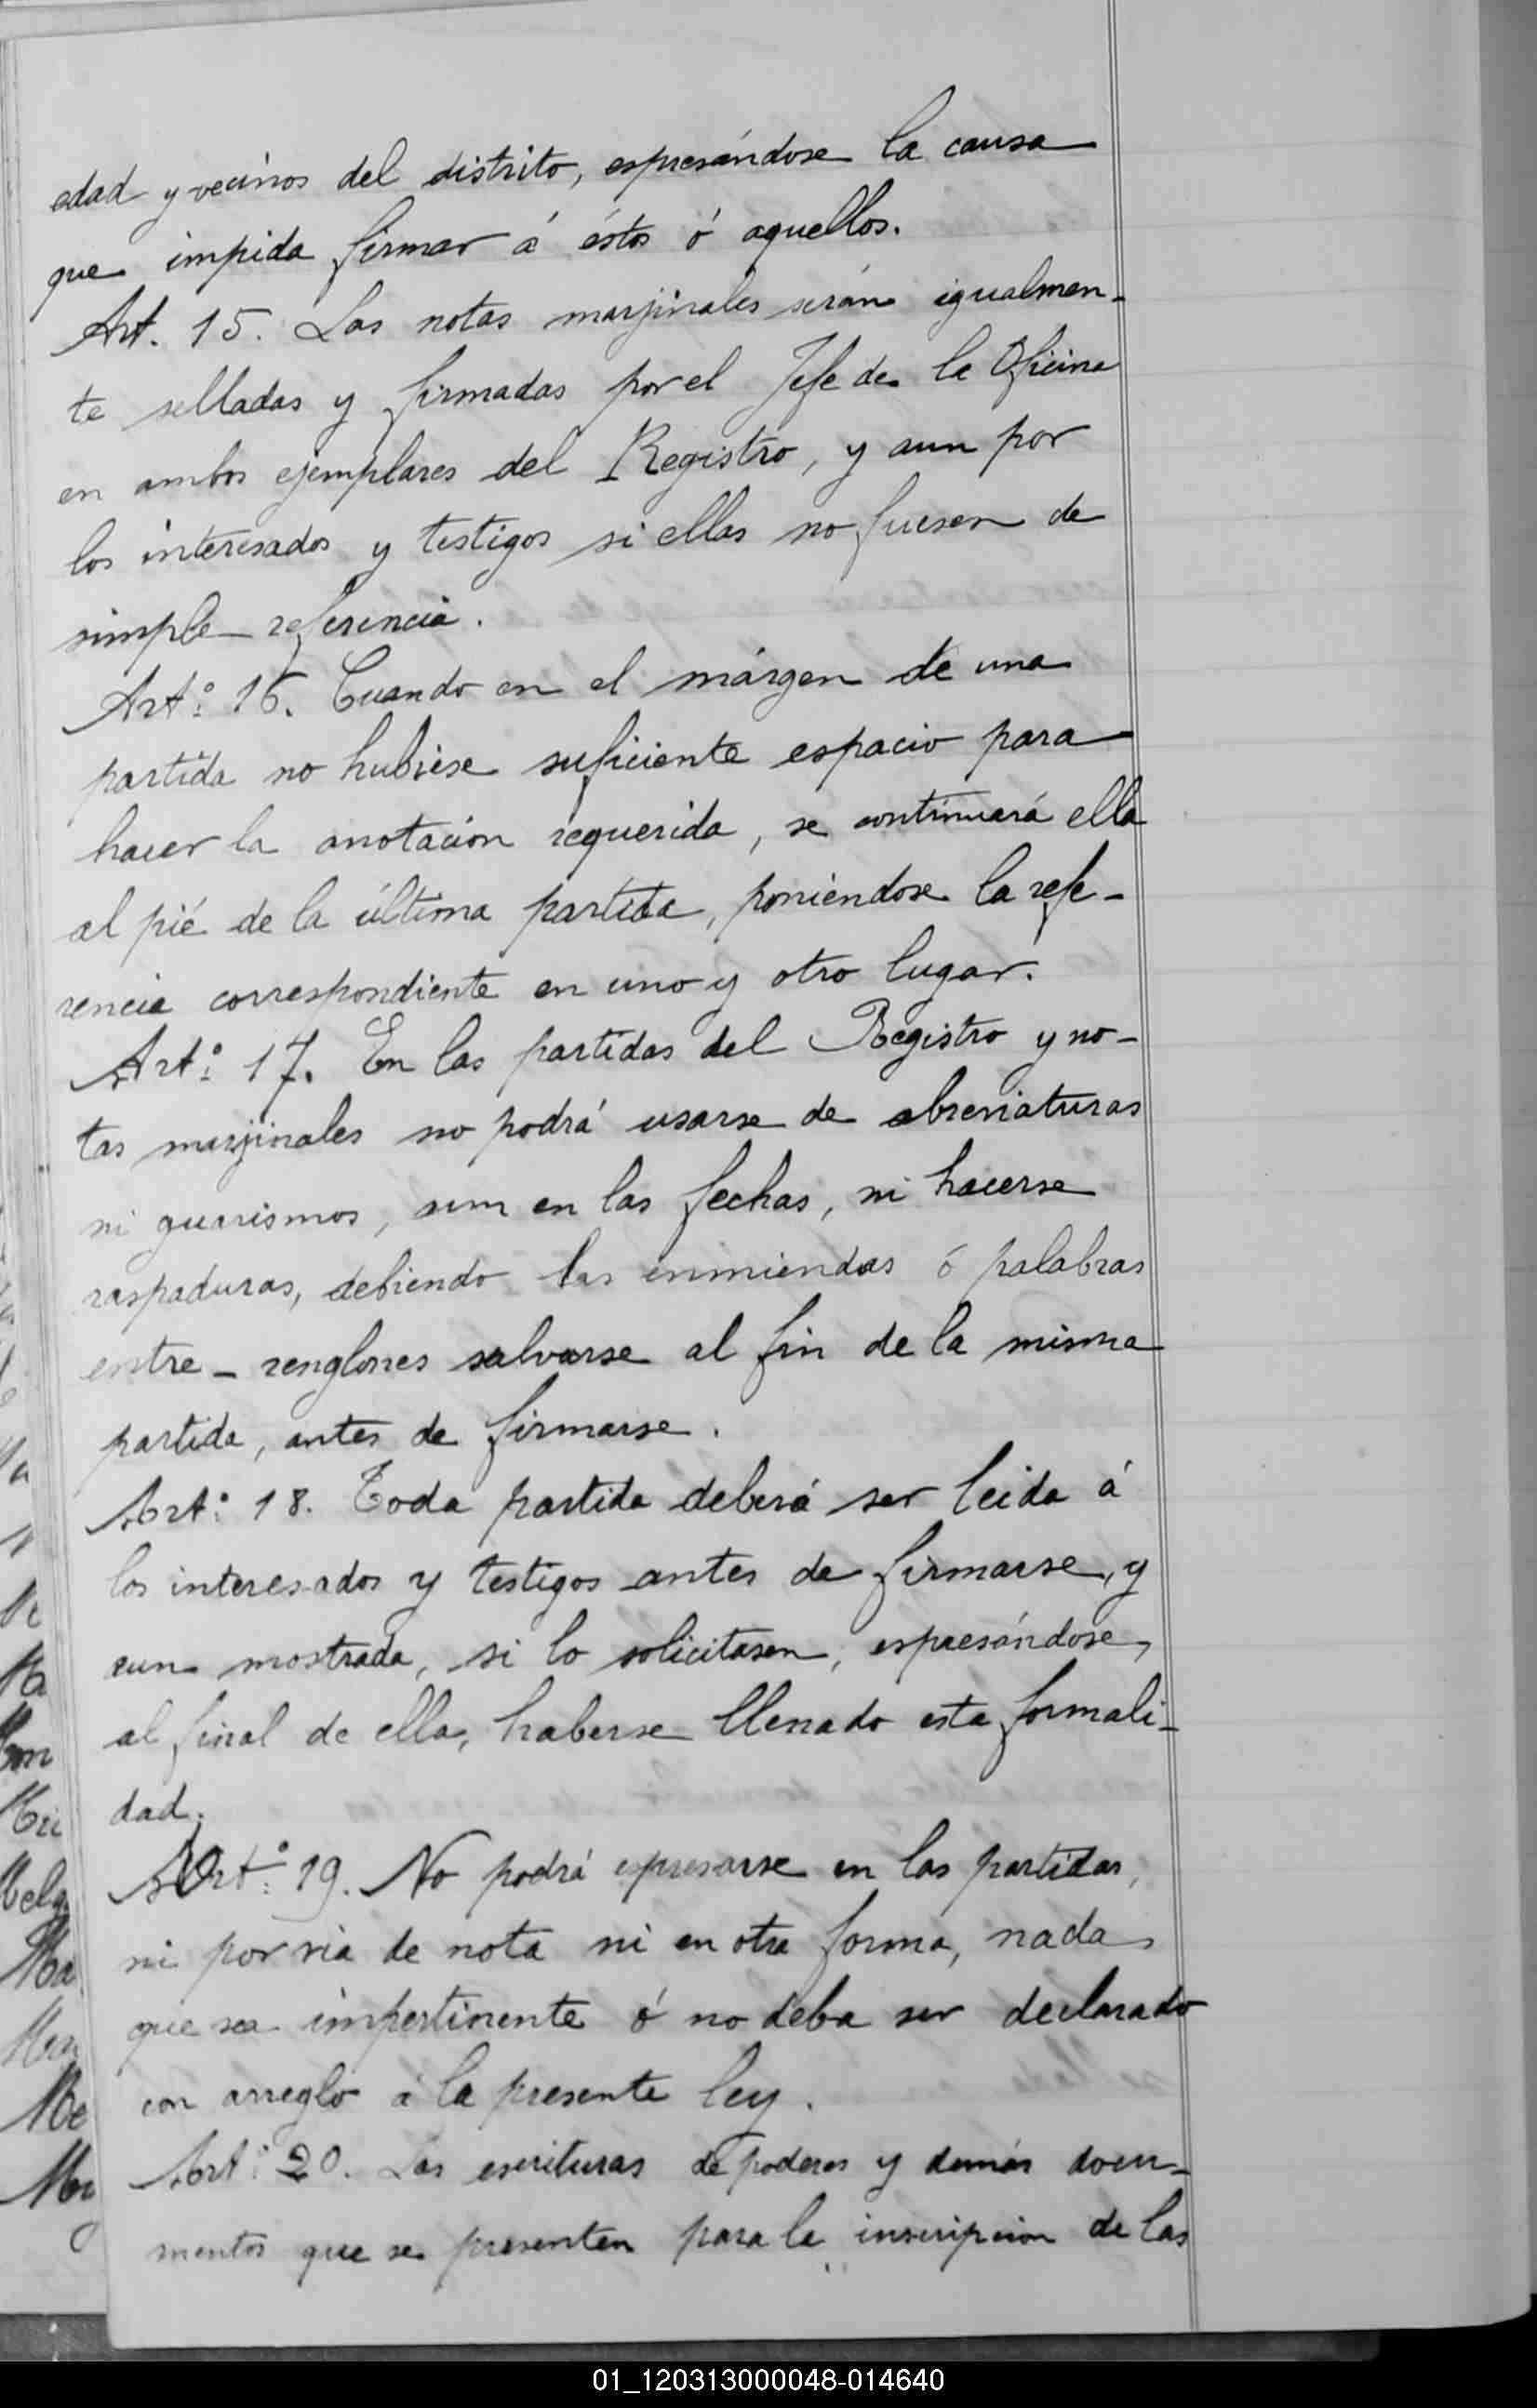 edad y vecinos del distrito, espresándose la causa
que impida firmar á éstos ó aquellos.
Art. 15. Las notas marjinales serán igualmen-
te selladas y firmadas por el Jefe de la Oficina
en ambos ejemplares del Registro, y aun por
los interesados y testigos si ellas no fuesen de
simple referencia.
Art.º 16. Cuando en el márgen de una
partida no hubiese suficiente espacio para
hacer la anotación requerida, se continuará ella
al pié de la última partida, poniéndose la refe-
rencia correspondiente en uno y otro lugar.
Art.º 17. En las partidas del Registro y no-
tas marjinales no podrá usarse de abreviaturas
ni guarismos, aun en las fechas, ni hacerse
raspaduras, debiendo las enmiendas ó palabras
entre-renglones salvarse al fin de la misma
partida, antes de firmarse.
Art.º 18. Toda partida deberá ser leida á
los interesados y testigos antes de firmarse, y
aun mostrada, si lo solicitasen, espresándose,
al final de ella, haberse llenado esta formali-
dad.
Art.º 19. No podrá espresarse en las partidas,
ni por via de nota ni en otra forma, nada
que sea impertinente ó no deba ser declarado
con arreglo á la presente ley.
Art.º 20. Las escrituras de poderes y demás docu-
mentos que se presenten para la inscripcion de las
01_120313000048-014640